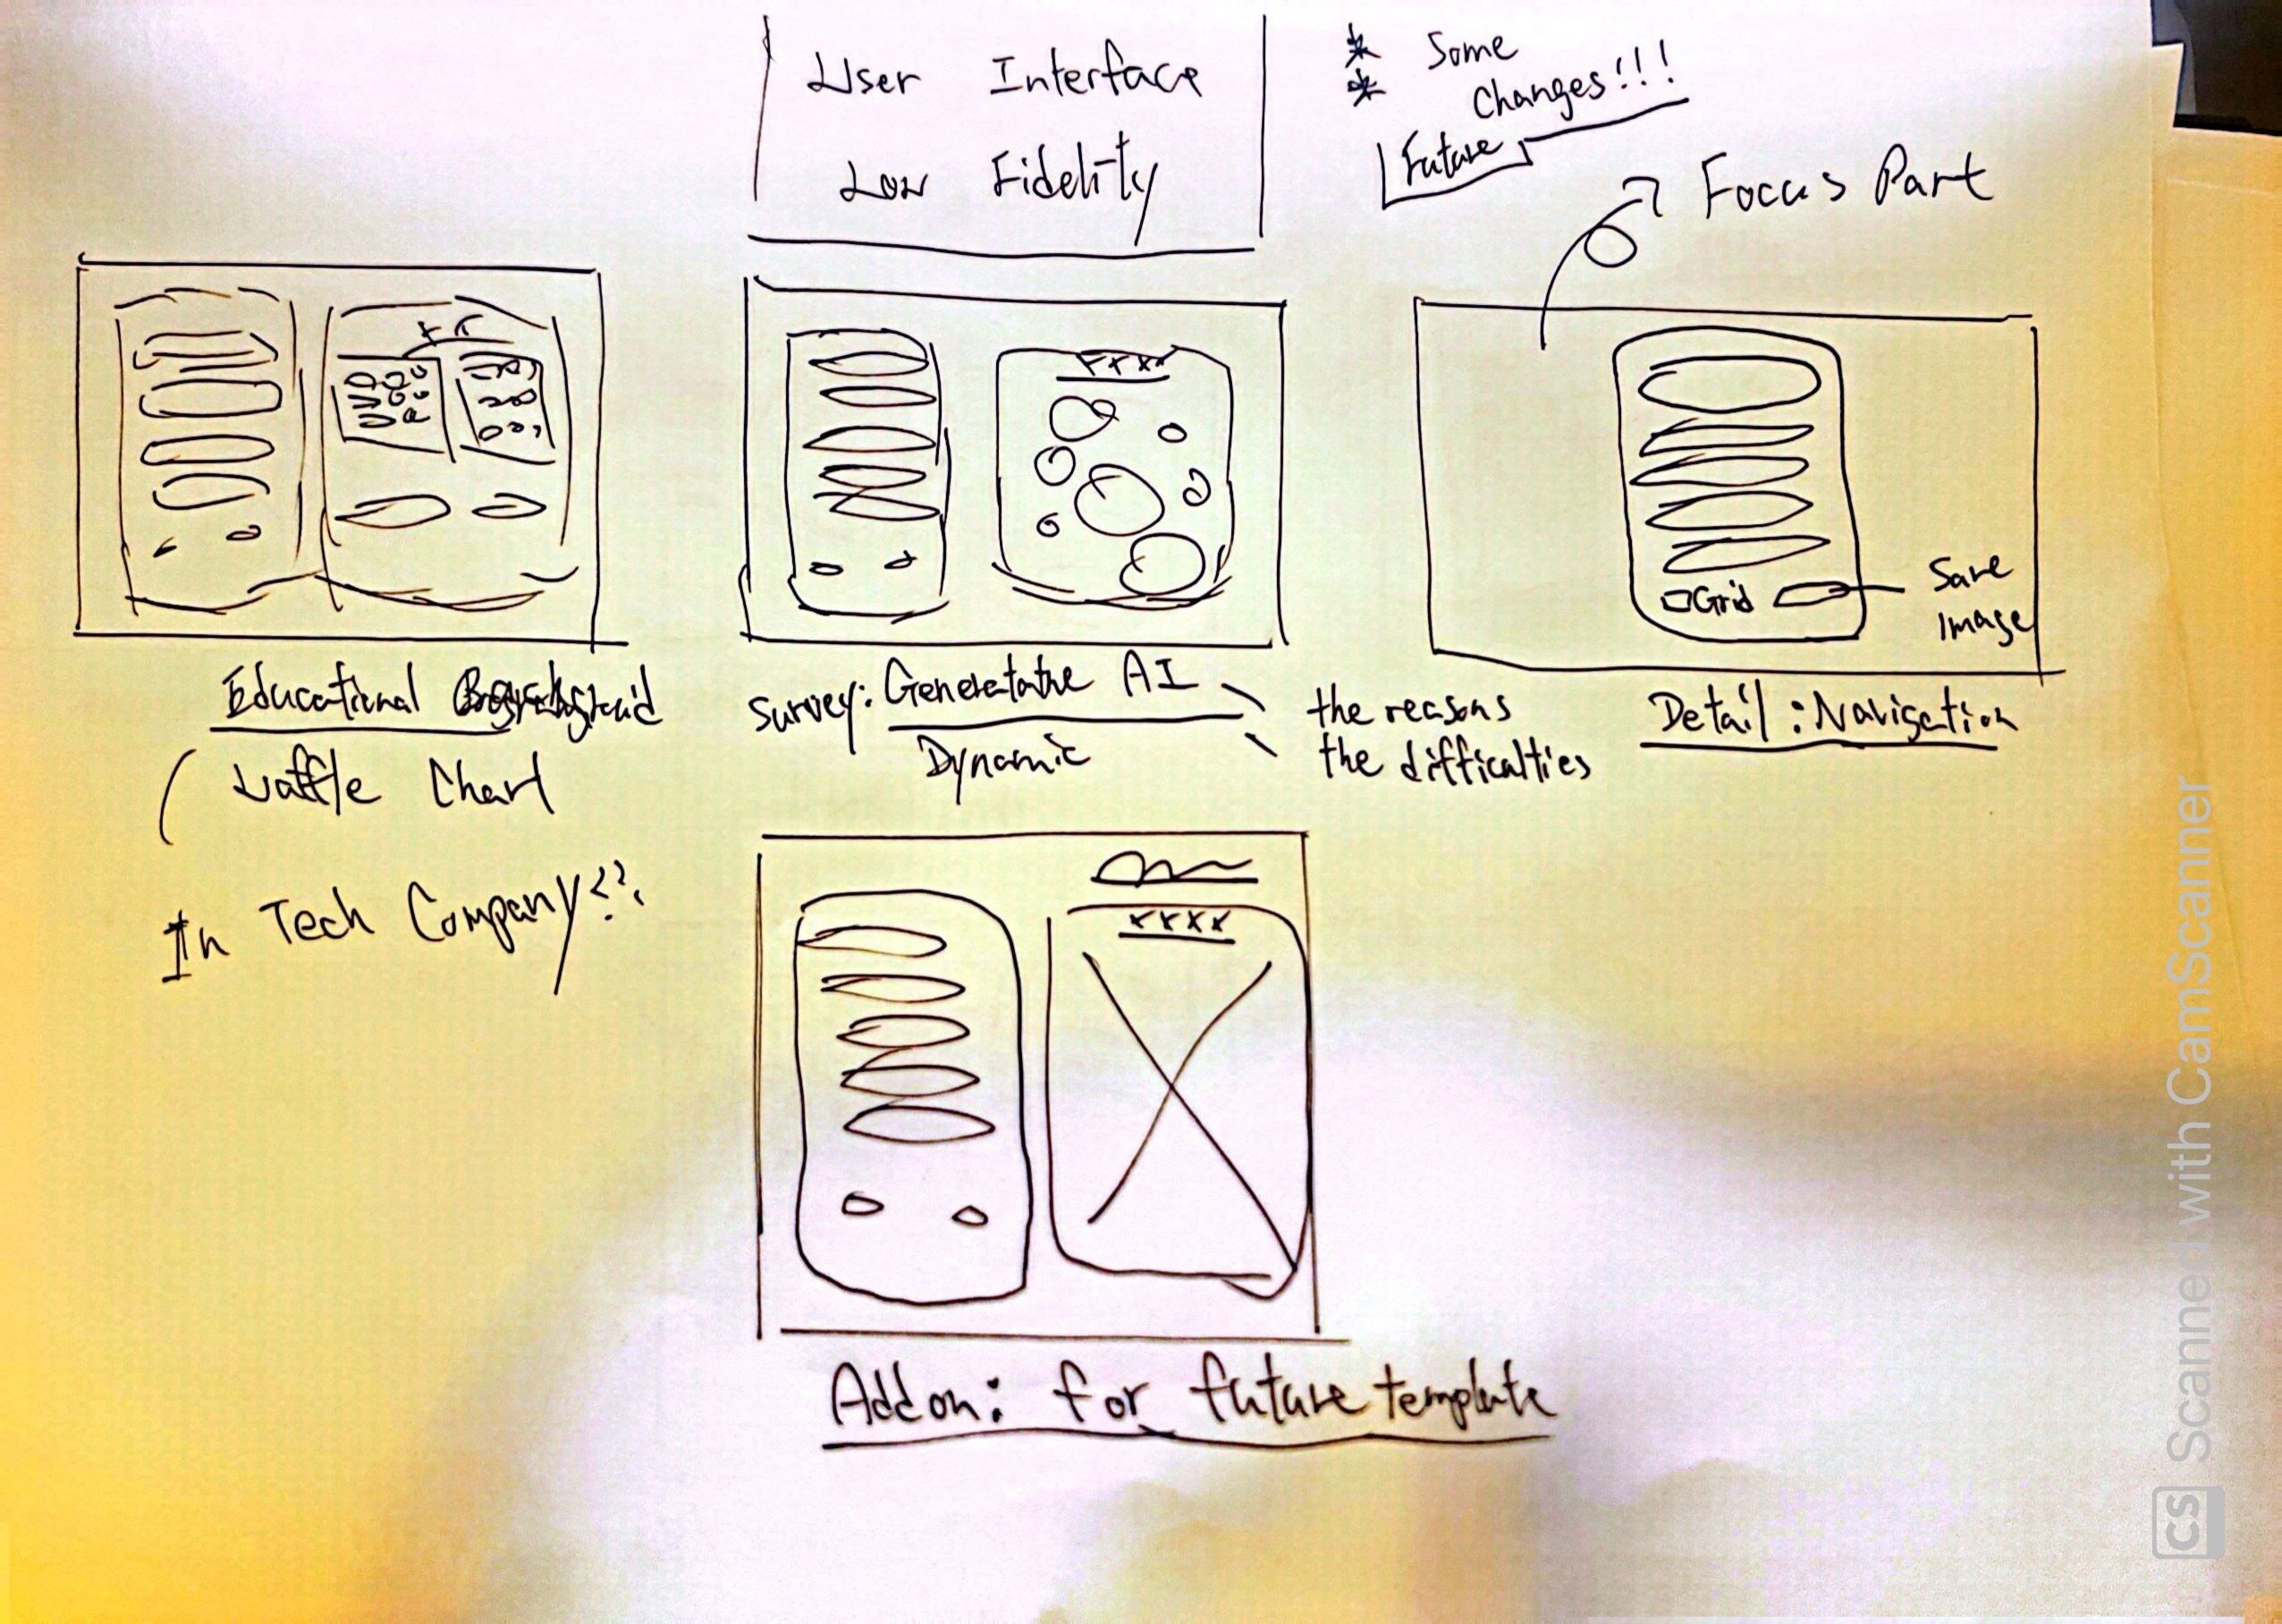 User Interface
Low Fidelity
Some
Changes!!!
Future
Focus Part
XXXX
Grid
Save
Image
Educational
Waffle Chart
In Tech Company??
Survey: Generatative AI
Dynamic
the reasons
the difficalties
Detail: Navigation
XXXX
Add on: for future template
Scanned with CamScanner
CS